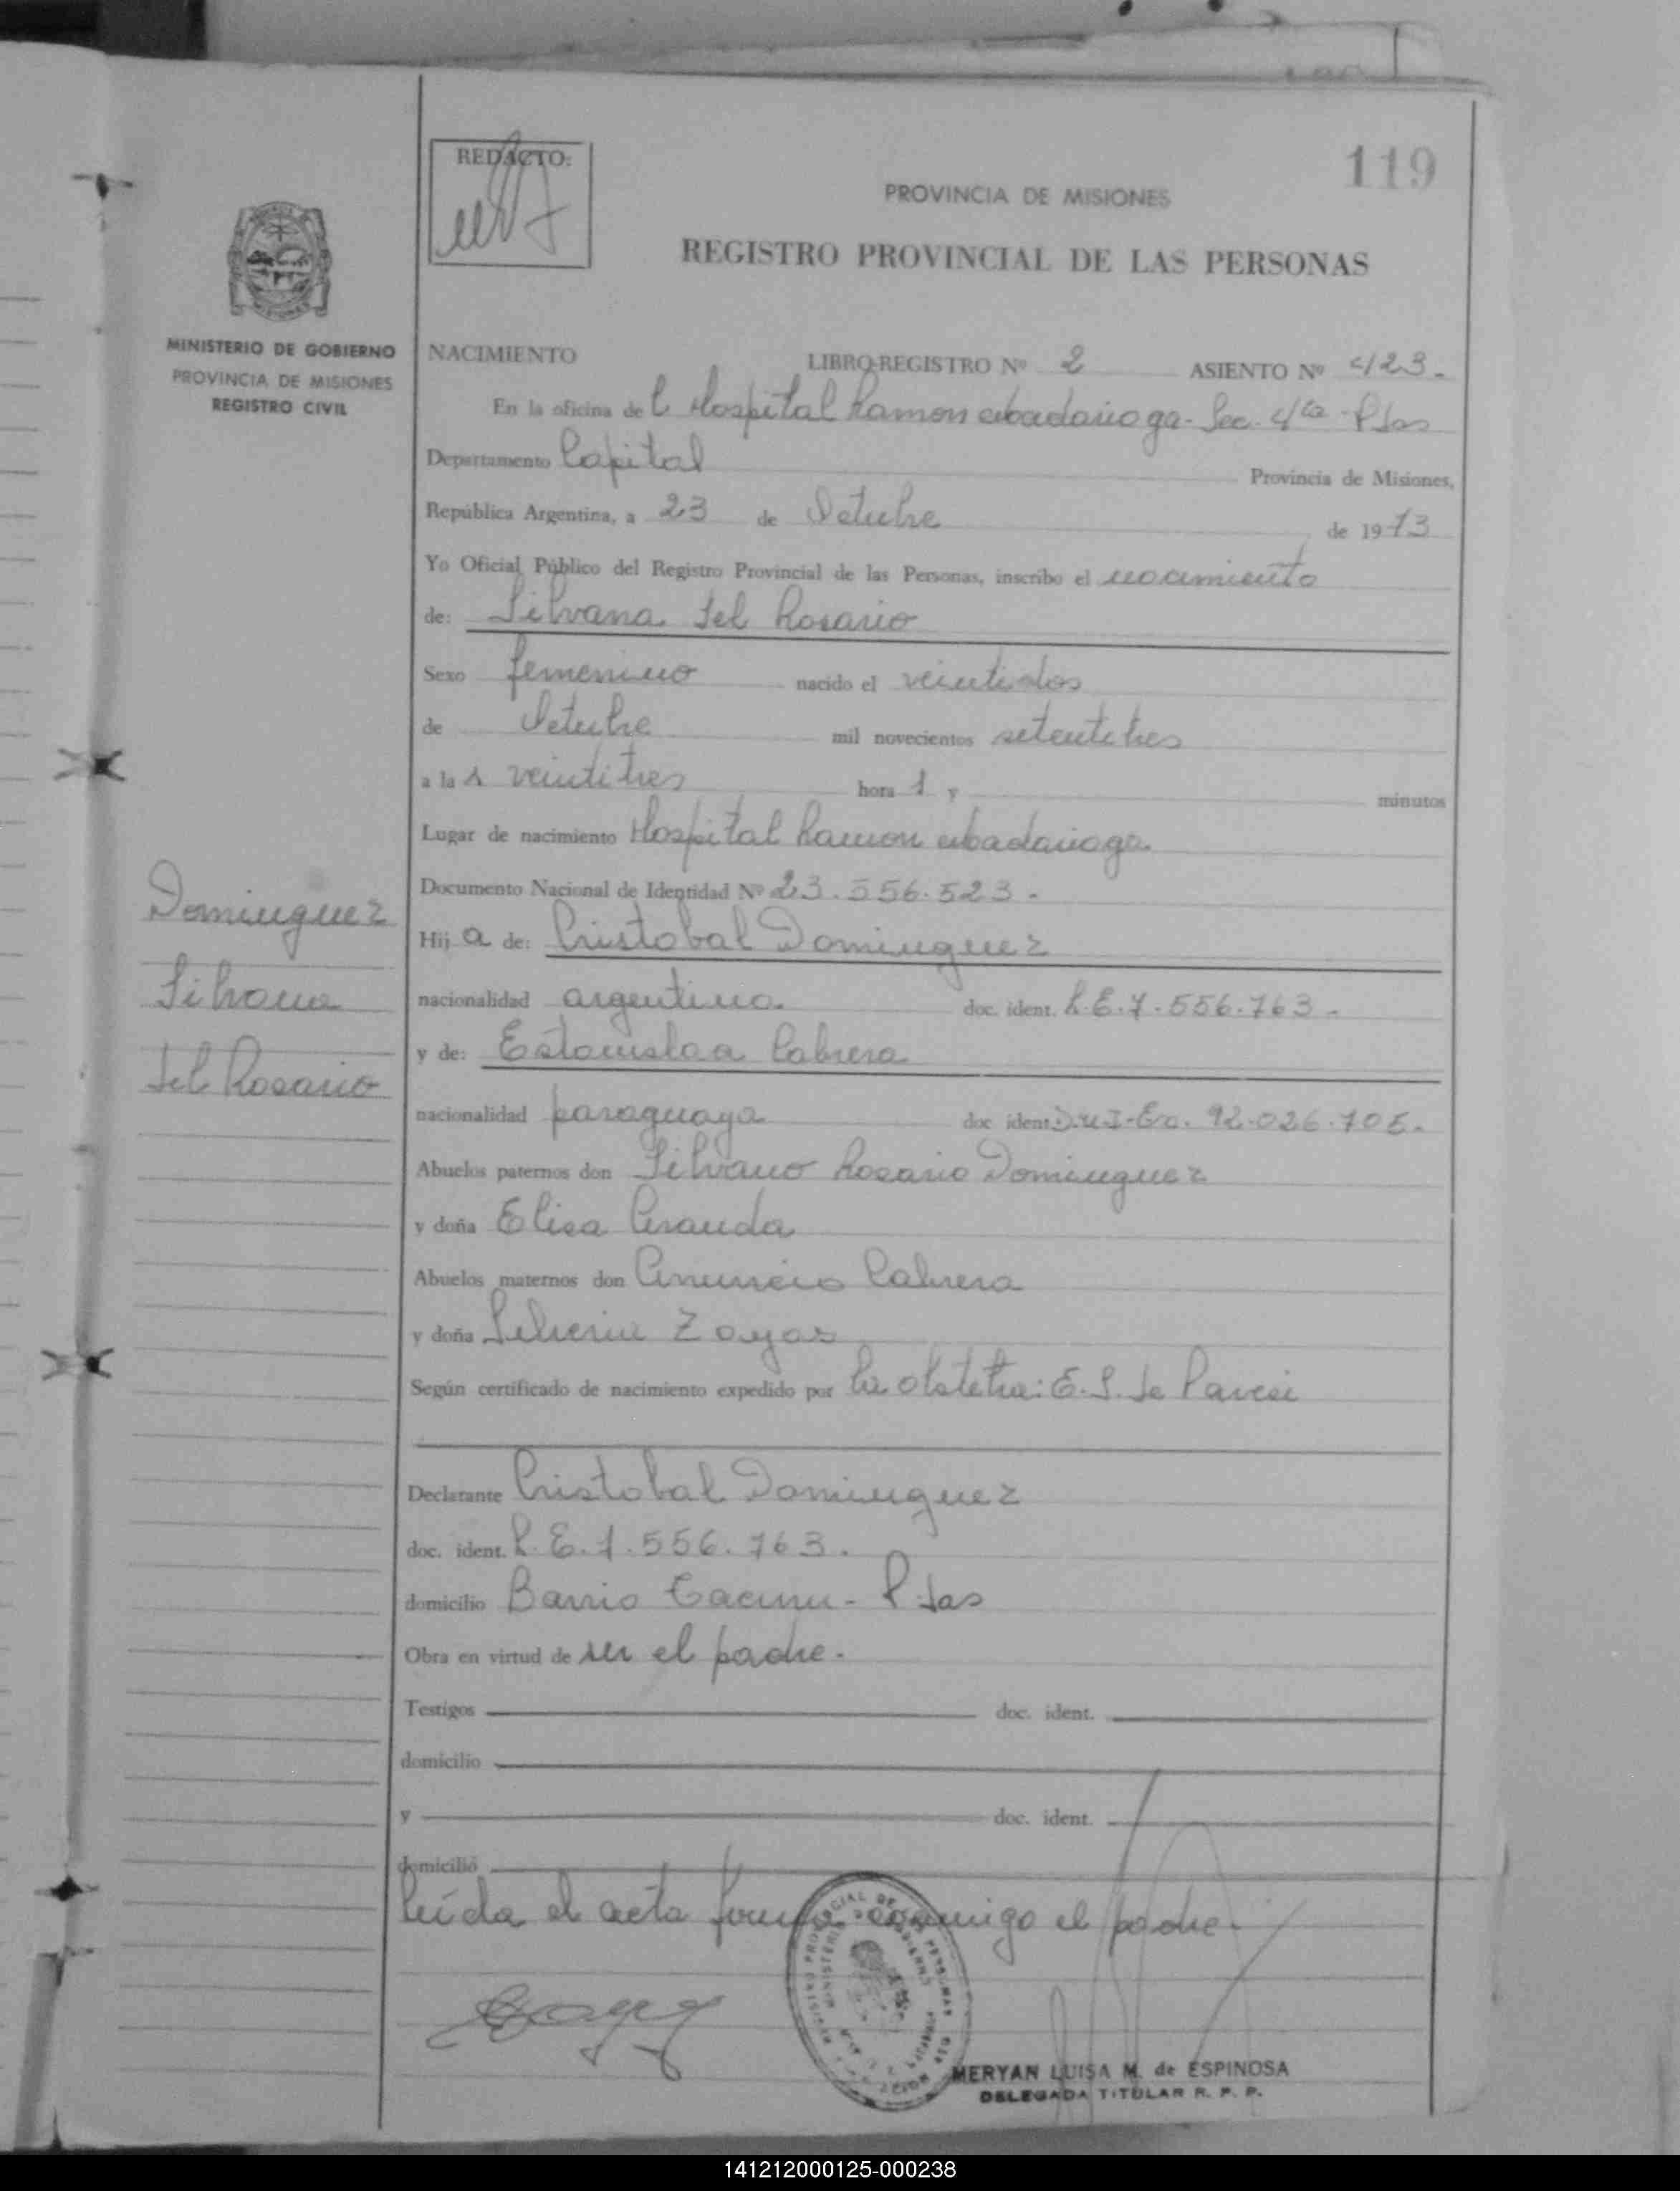 119
REDACTO:
PROVINCIA DE MISIONES
REGISTRO PROVINCIAL DE LAS PERSONAS
MINISTERIO DE GOBIERNO
PROVINCIA DE MISIONES
REGISTRO CIVIL
NACIMIENTO LIBRO-REGISTRO Nº 2 ASIENTO Nº 423.-
En la oficina de l Hospital Ramon Madariaga - Sec. 4ta - Pdas
Departamento Capital Provincia de Misiones,
República Argentina, a 23 de Octubre de 1973
Yo Oficial Público del Registro Provincial de las Personas, inscribo el nacimiento
de: Silvana del Rosario
Sexo femenino nacido el veintidos
de Octubre mil novecientos setentitres
a la s veintitres hora s y minutos
Lugar de nacimiento Hospital Ramon Madariaga.
Documento Nacional de Identidad Nº 23.556.523.-
Domínguez
Silvana
del Rosario
Hij a de: Cristobal Dominguez
nacionalidad argentina doc. ident. L.E.7.556.763.-
y de: Estanislaa Cabrera
nacionalidad paraguaya doc ident. D.N.I-Ex. 92.026.705.-
Abuelos paternos don Silvano Rosario Dominguez
y doña Elisa Aranda
Abuelos maternos don Anuncio Cabrera
y doña Zayas
Según certificado de nacimiento expedido por la obstetra: E. S. de
Declarante Cristobal Dominguez
doc. ident. L.E.7.556.763.
domicilio Barrio Tacuru - Pdas
Obra en virtud de ser el padre.-
Testigos doc. ident.
domicilio
y doc. ident.
domicilio
leída el acta firma conmigo el padre.-
MERYAN LUISA M. de ESPINOSA
DELEGADA TITULAR R. P. P.
141212000125-000238